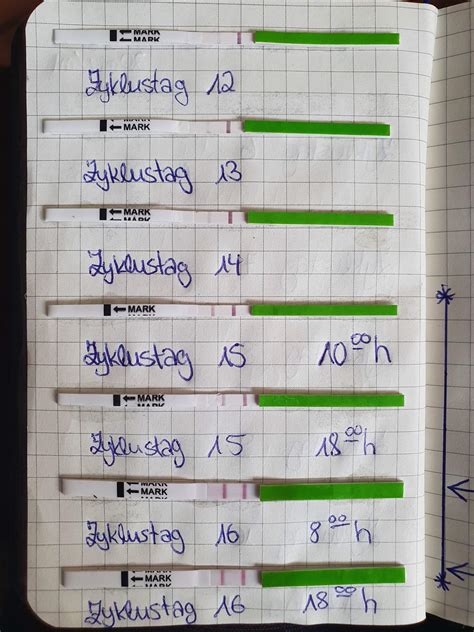 ←MARK
←MARK
Zyklustag 12
←MARK
Zyklustag 13
←MARK
Zyklustag 14
←MARK
Zyklustag 15 10⁰⁰h
←MARK
Zyklustag 15 18⁰⁰h
←MARK
←MARK
Zyklustag 16 8⁰⁰h
←MARK
←MARK
Zyklustag 16 18⁰⁰h